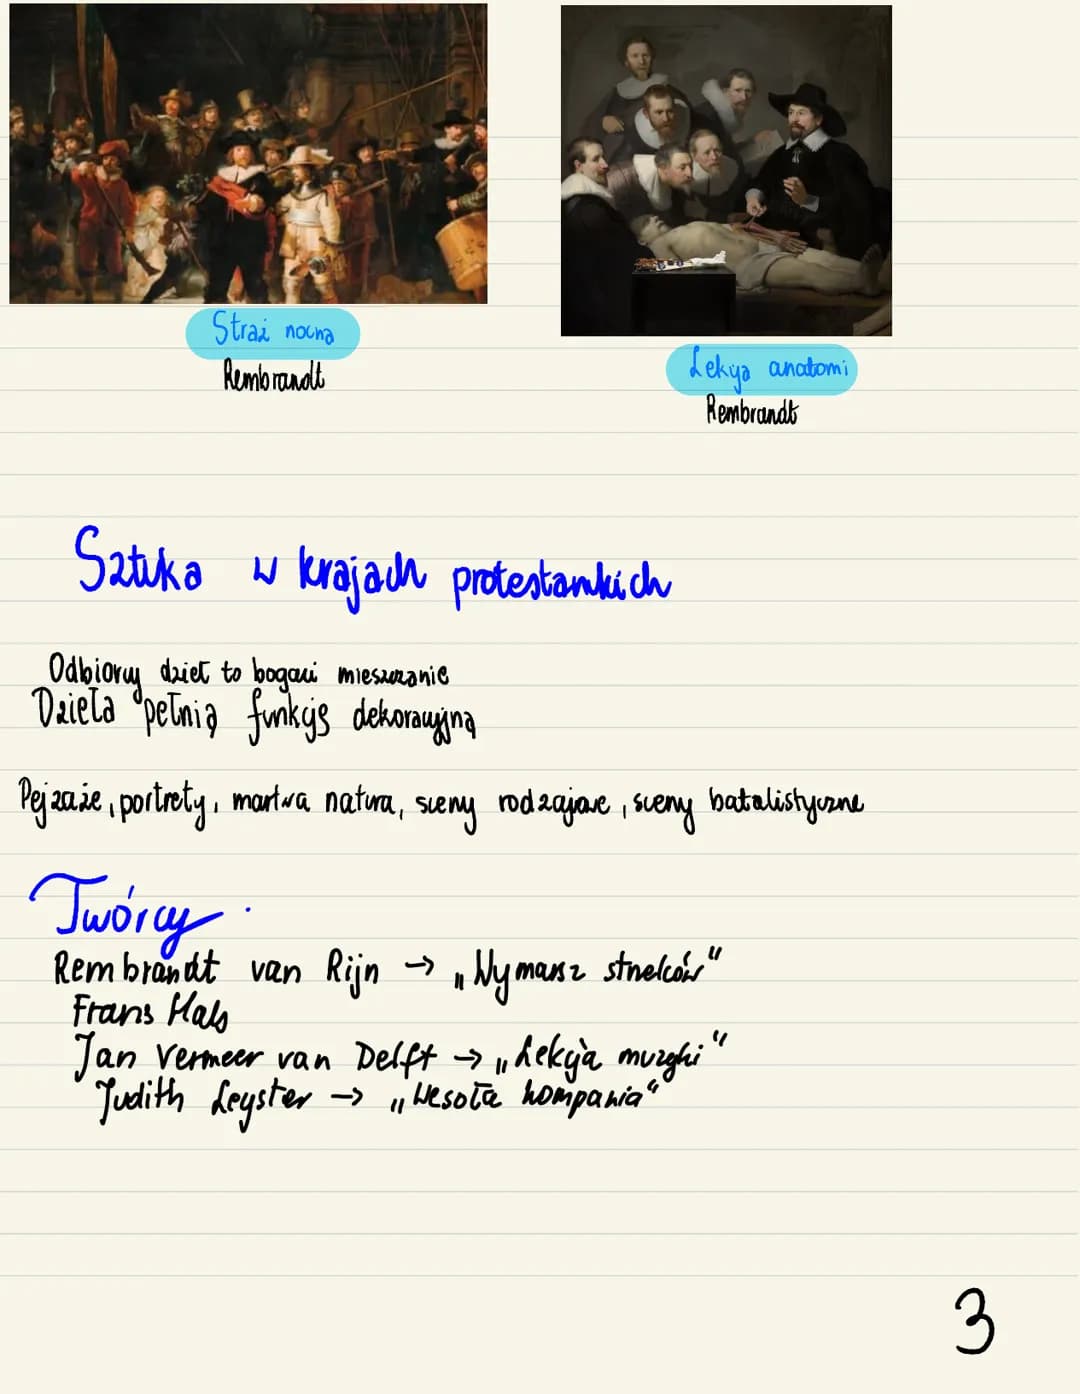 Straż nocna
Rembrandt
Lekcja anatomi
Rembrandt
Sztuka w krajach protestanckich
Odbiorcy dzieł to bogaci mieszczanie
Dzieła pełnią funkcję dekoracyjną
Pejzaże, portrety, martwa natura, sceny rodzajowe, sceny batalistyczne
Twórcy
Rembrandt van Rijn → „Wymarsz strzelców"
Frans Hals
Jan Vermeer van Delft → „Lekcja muzyki"
Judith Leyster → „Wesoła kompania"
3